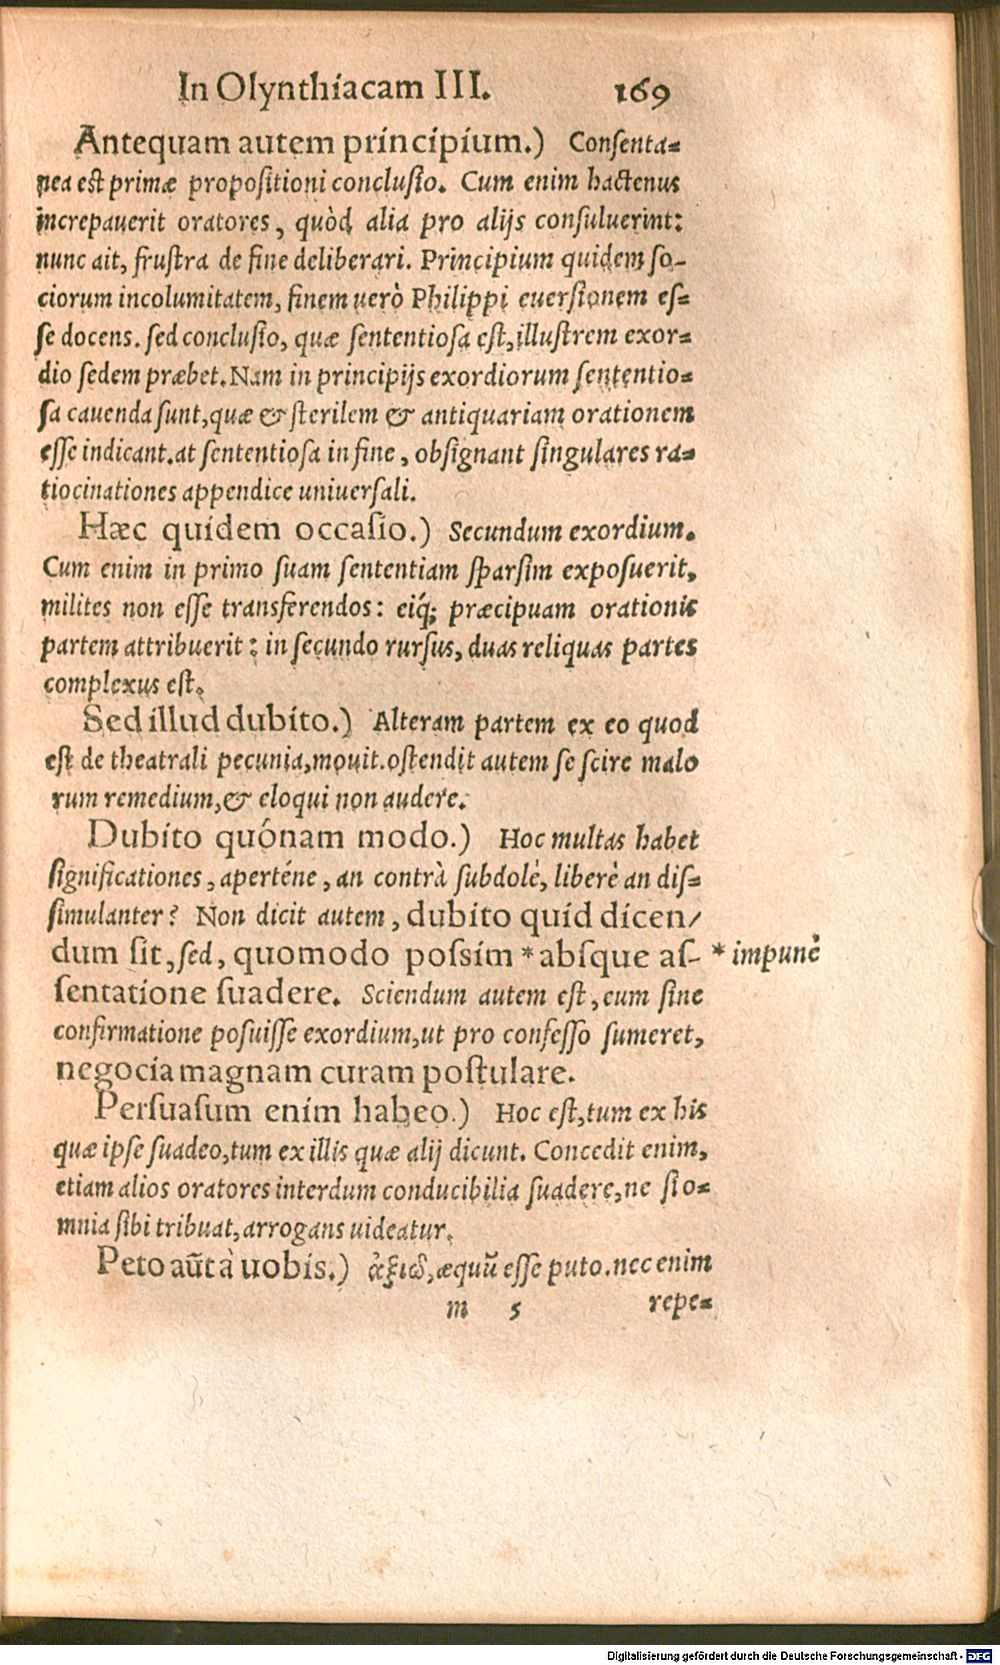 In Olynthiacam III. 169
Antequam autem principium.) Consenta-
nea est primæ propositioni conclusio. Cum enim hactenus
increpauerit oratores, quòd alia pro alijs consuluerint:
nunc ait, frustra de fine deliberari. Principium quidem so-
ciorum incolumitatem, finem uerò Philippi euersionem es-
se docens. sed conclusio, quæ sententiosa est, illustrem exor-
dio sedem præbet. Nam in principijs exordiorum sententio-
sa cauenda sunt, quæ & sterilem & antiquariam orationem
esse indicant. at sententiosa in fine, obsignant singulares ra-
tiocinationes appendice uniuersali.
Hæc quidem occasio.) Secundum exordium.
Cum enim in primo suam sententiam sparsim exposuerit,
milites non esse transferendos: eiq́; præcipuam orationis
partem attribuerit: in secundo rursus, duas reliquas partes
complexus est.
Sed illud dubito.) Alteram partem ex eo quod
est de theatrali pecunia, mouit. ostendit autem se scire malo
rum remedium, & eloqui non audere.
Dubito quónam modo.) Hoc multas habet
significationes, aperténe, an contrà subdolè, liberè an dis-
simulanter? Non dicit autem, dubito quid dicen/
dum sit, sed, quomodo possim * absque as- * impunè
sentatione suadere. Sciendum autem est, eum sine
confirmatione posuisse exordium, ut pro confesso sumeret,
negocia magnam curam postulare.
Persuasum enim habeo.) Hoc est, tum ex his
quæ ipse suadeo, tum ex illis quæ alij dicunt. Concedit enim,
etiam alios oratores interdum conducibilia suadere, ne si o-
mnia sibi tribuat, arrogans uideatur.
Peto aũt à uobis.) ἀξιῶ, æquũ esse puto. nec enim
m 5 repe-
Digitalisierung gefördert durch die Deutsche Forschungsgemeinschaft - DFG